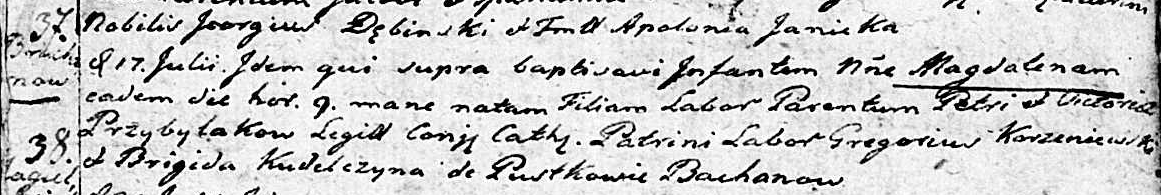 37. Nobilis Georgius Dębinski et Fmll Apolonia Janicka
D 17. Julii. Idem qui supra baptisavi Infantem Nñe Magdalenam
now eadem die hor. 9. mane natam Filiam Labor Parentum Petri et Victoria
Przybylakow Legitt Conjj Cathj. Patrini Labor Gregorius Korzeniewski
38. et Brigida Kudelczyna de Pustkowie Bachanow